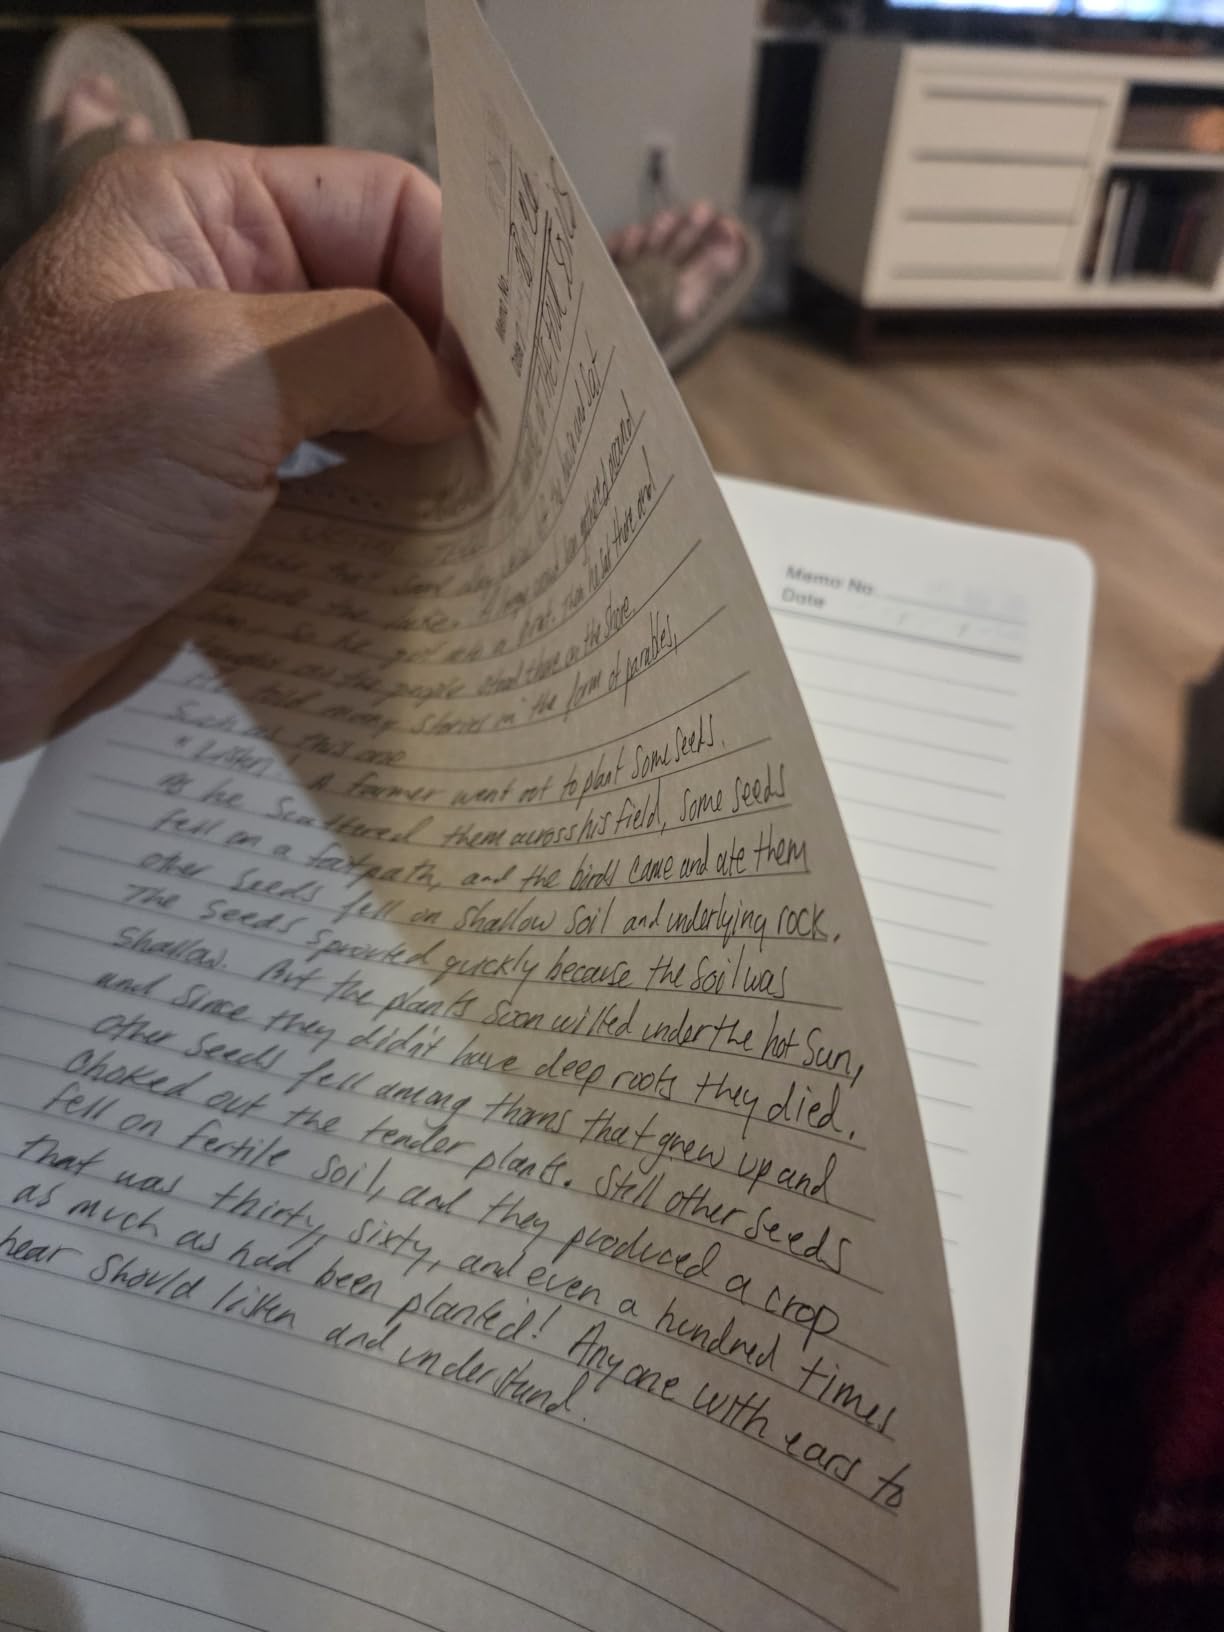 Memo No.
Date
house and sat
beside the lake. A large crowd soon gathered around
him. So he got into a boat. Then he sat there and
taught as the people stood there on the shore.
He told many stories in the form of parables,
Such as this one
"Listen! A farmer went out to plant some seeds.
As he scattered them across his field, some seeds
fell on a footpath, and the birds came and ate them
other seeds fell on shallow soil and underlying rock.
The seeds sprouted quickly because the soil was
shallow. But the plants soon wilted under the hot sun,
and since they didn't have deep roots they died.
other seeds fell among thorns that grew up and
choked out the tender plants. Still other seeds
fell on fertile soil, and they produced a crop
that was thirty, sixty, and even a hundred times
as much as had been planted! Anyone with ears to
hear should listen and understand.
Memo No.
Date